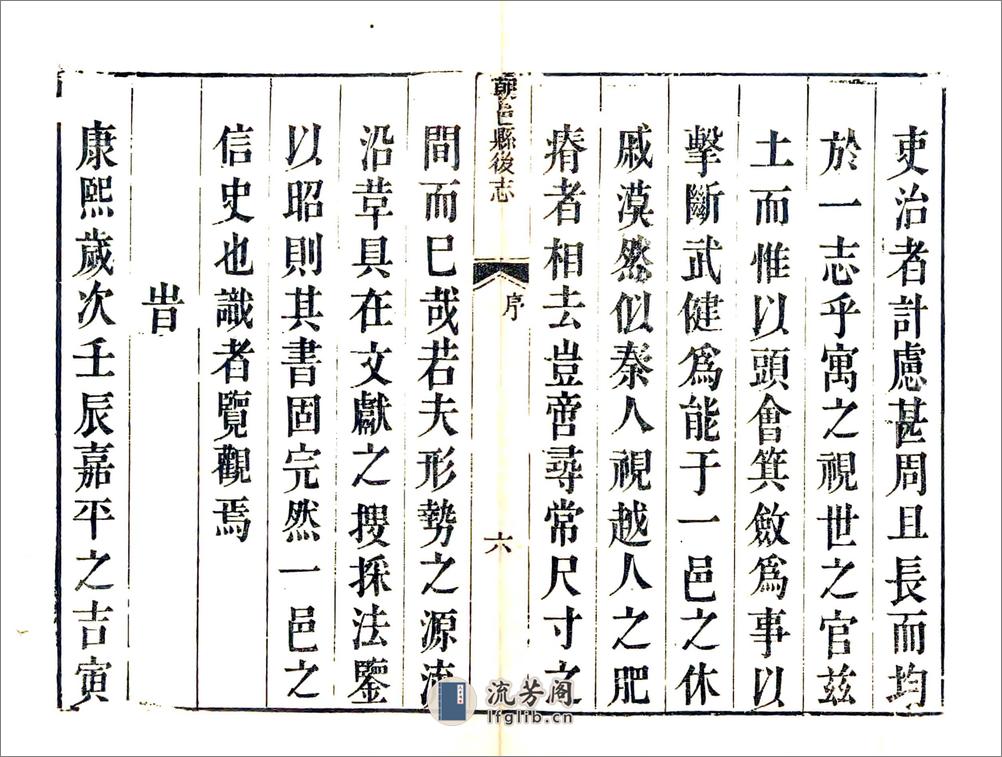 吏治者計慮甚周且長而均
於一志乎寓之視世之官茲
土而惟以頭會箕斂爲事以
擊斷武健爲能于一邑之休
戚漠然似秦人視越人之肥
瘠者相去豈啻尋常尺寸之
朝邑縣後志
序
六
間而巳哉若夫形勢之源流
沿革具在文獻之搜採法鑒
以昭則其書固完然一邑之
信史也識者覽觀焉
旹
康熙歲次壬辰嘉平之吉寅
流芳阁
lfglib.cn